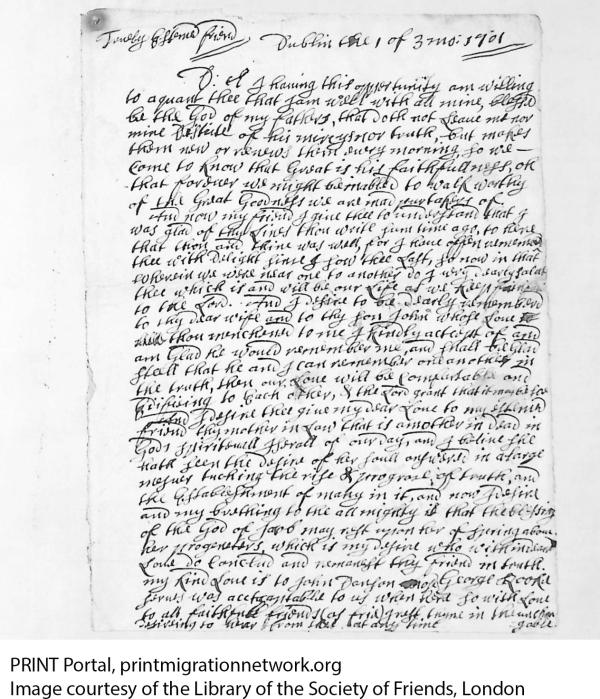 Truely Esteemed friend Dublin the 1 of 3 mo: 1701
I having this oppertunity am willing
to aquant thee that I am well with all mine, blessed
be the God of my fathers, that doth not Leave me nor
mine destitute of his mircys nor truth, but makes
them new or renews them every morning, so we
Come to know that Great is his faithfullness, oh
that forever we might be inabled to walk worthy
of the Great Goodness we are mad partakers of
And now my friend I give thee to understand that I
was glad of thy Lines thou writ sum time ago, to here
that thou and thine was well, for I have offen remembred
thee with Delight sinse I sow thee Last, so now in that
wherein we were near one to another do I very dearly salut
thee which is and will be our Life as we keep
to the Lord. And I desire to be dearly remembred
to thy dear wife and to thy son John whose Love
thou menchened to me I kindly accept of and
am Glad he would remember me, and shall be Glad
still that he and I can remember one another in
the truth, then our Love will be Comfortable and
to Each other, & the Lord grant that it may be soe
I desire thee give my dear Love to my Esteemed
friend thy mother in Law that is a mother in dead in
Gods spirituall Iseraell of our day, and I belive she
hath seen the desire of her soull answered in a Large
mesuer tuching the rise & progrose of truth, and
the Establishment of many in it, and now I desire
and my brething to the all mighty is that the blessing
of the God of Jacob may rest upon her of spring above
her progeneters, which is my desire who with indeard
Love do Conclud and remanest thy friend in truth
my Kind Love is to John Danson George Rooke
serves was acceptable to us when here so with Love
to all faithfull friends as
desireing to hear from thee at any time
PRINT Portal, printmigrationnetwork.org
Image courtesy of the Library of the Society of Friends, London